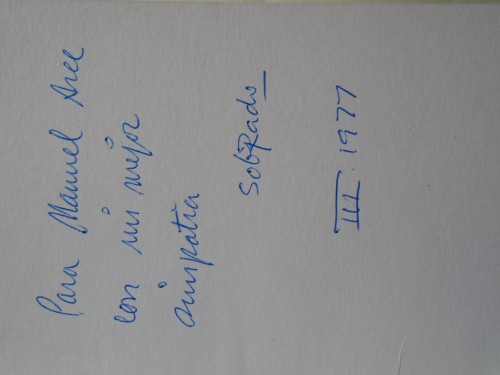 Para Manuel Arce
con mi mejor
simpatía
Sobrado
III. 1977